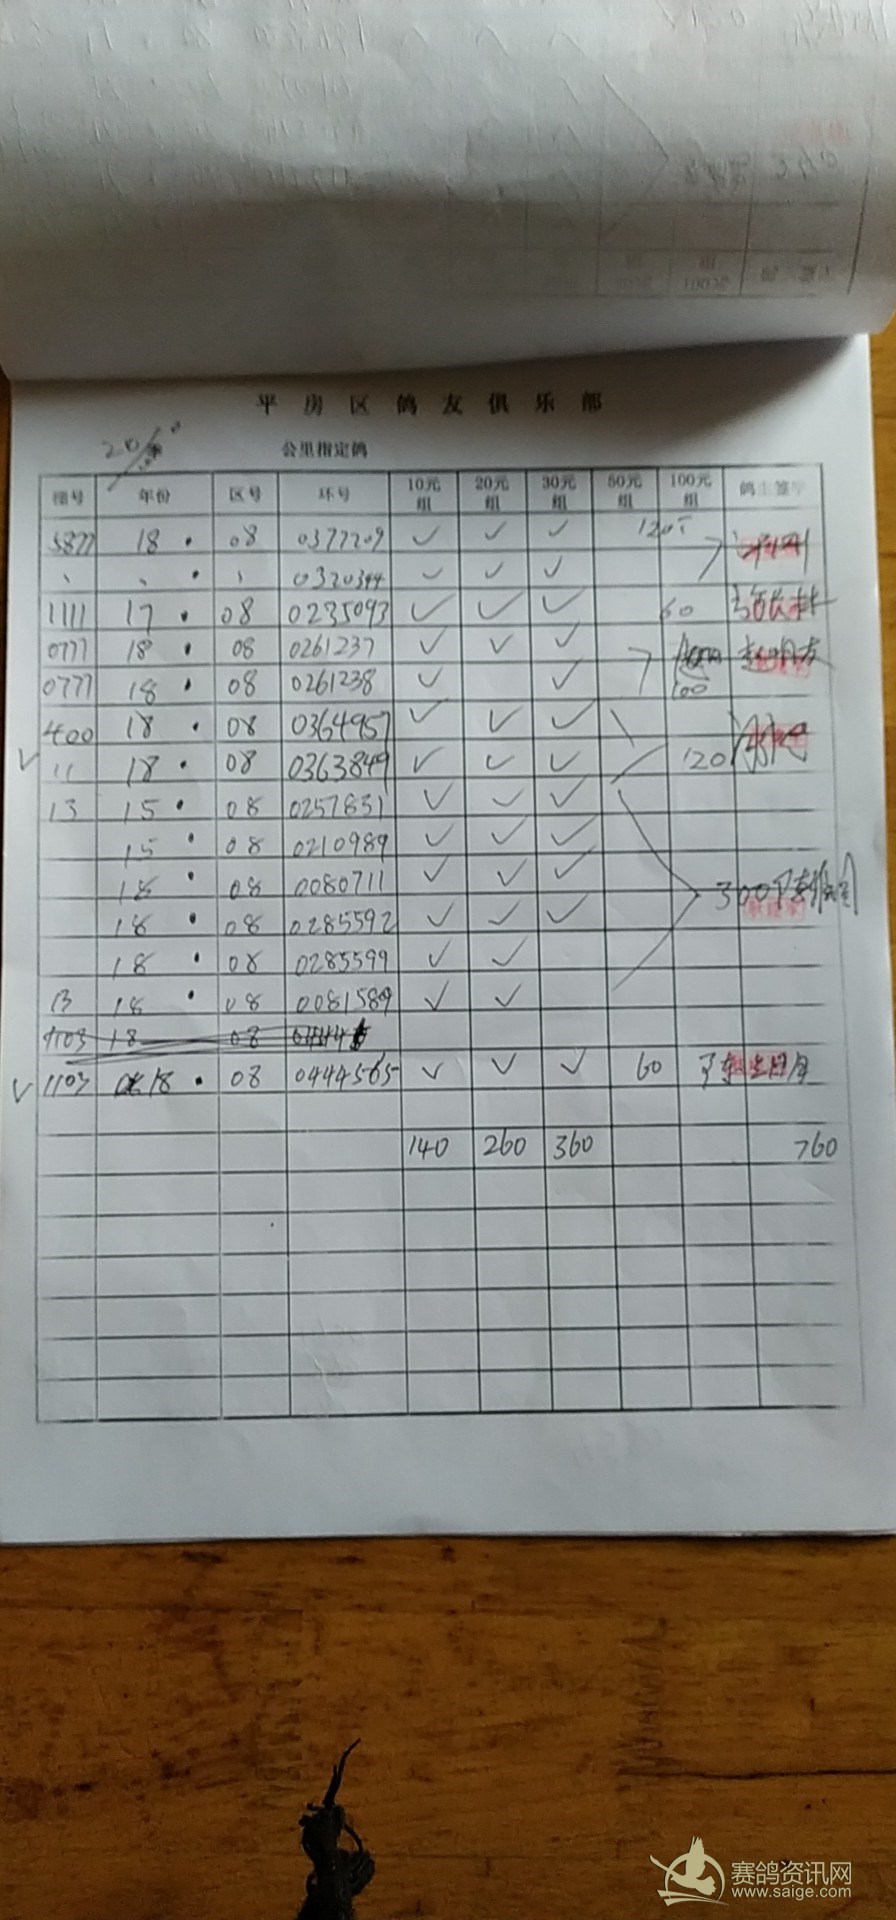 平房区鸽友俱乐部
公里指定鸽
棚号 年份 区号 环号 10元组 20元组 30元组 50元组 100元组 鸽主签字
5877 18 · 08 0377209 ✓ ✓ ✓ 120
、 、 · 、 0320344 ✓ ✓ ✓
1111 17 · 08 0235093 ✓ ✓ ✓ 60
0777 18 · 08 0261237 ✓ ✓ ✓
0777 18 · 08 0261238 ✓ ✓ 100
400 18 · 08 0364957 ✓ ✓ ✓
✓ 11 18 · 08 0363849 ✓ ✓ ✓ 120
13 15 · 08 0257831 ✓ ✓ ✓
15 · 08 0210989 ✓ ✓ ✓
18 · 08 0080711 ✓ ✓ ✓ 300
18 · 08 0285592 ✓ ✓ ✓
18 · 08 0285599 ✓ ✓
13 18 · 08 0081589 ✓ ✓
1103 18 08
✓ 1103 18 · 08 0444565 ✓ ✓ ✓ 60
140 260 360 760
赛鸽资讯网
www.saige.com